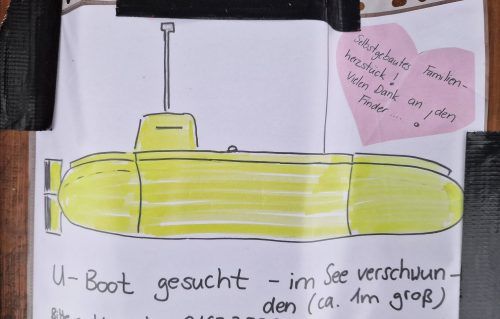 Selbstgebautes Familien-
herzstück!
Vielen Dank an den
Finder....!
U-Boot gesucht - im See verschwun-
den (ca. 1m groß)
Bitte